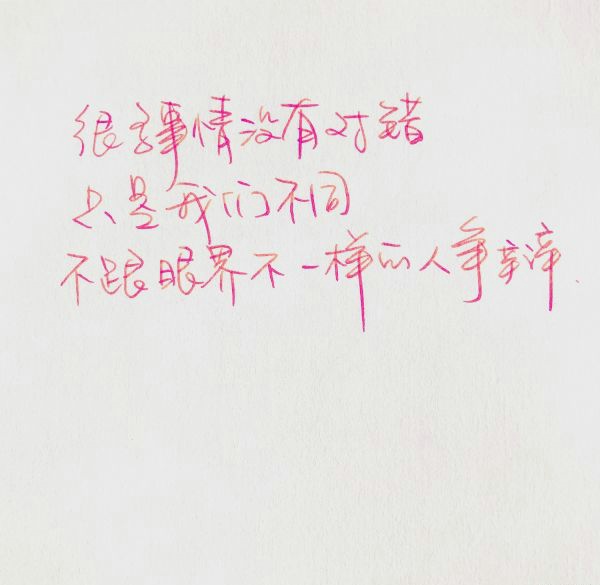 很多事情没有对错
只是我们不同
不跟眼界不一样的人争辩.